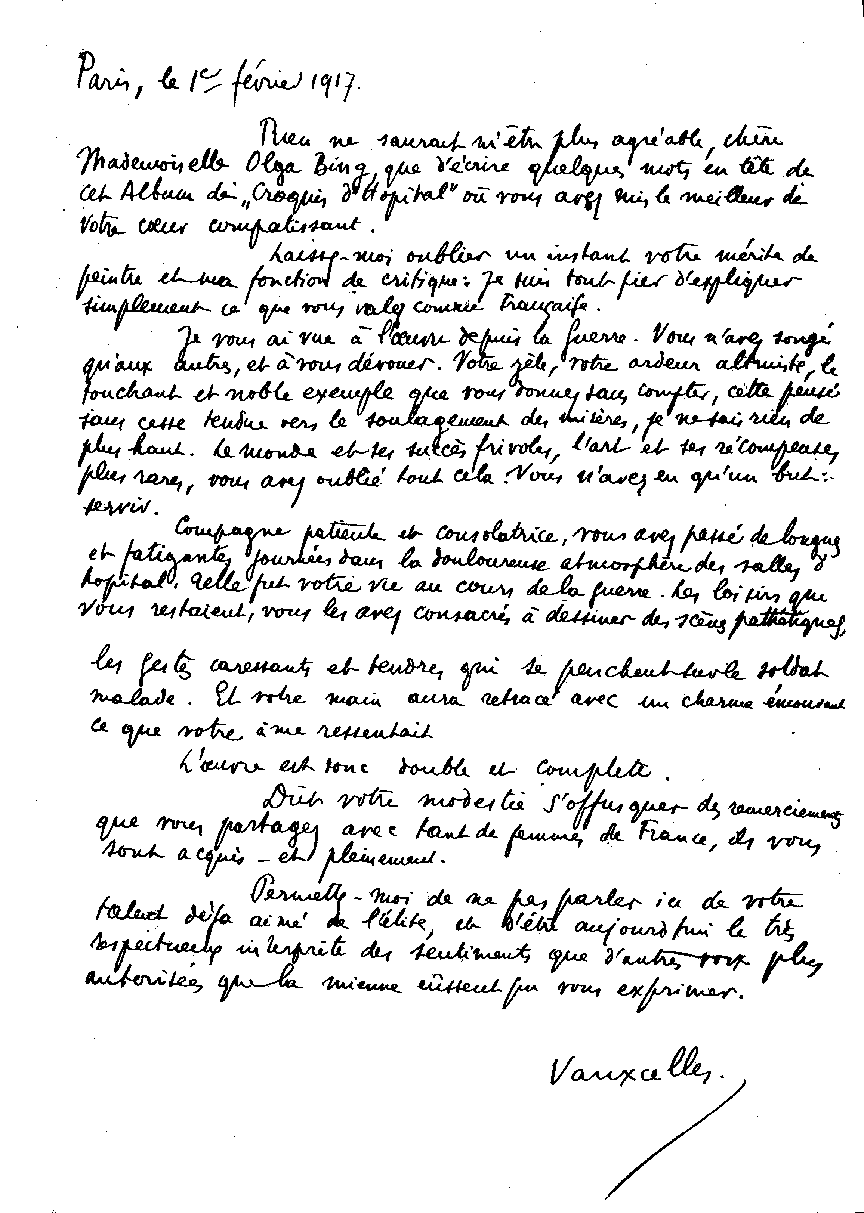 Paris, le 1er février 1917.
Rien ne saurait m'être plus agréable, chère
Mademoiselle Olga Bing, que d'écrire quelques mots en tête de
cet Album de „Croquis d'Hôpital" où vous avez mis le meilleur de
votre cœur compatissant.
Laissez-moi oublier un instant votre mérite de
peintre et ma fonction de critique: Je suis tout fier d'expliquer
simplement ce que vous valez comme Française.
Je vous ai vue à l'œuvre depuis la Guerre. Vous n'avez songé
qu'aux autres, et à vous dévouer. Votre zèle, votre ardeur altruiste, le
touchant et noble exemple que vous donnez sans compter, cette pensée
sans cesse tendue vers le soulagement des misères, je ne sais rien de
plus haut. Le monde et ses succès frivoles, l'art et ses récompenses
plus rares, vous avez oublié tout cela. Vous n'avez eu qu'un but:
servir.
Compagne patiente et consolatrice, vous avez passé de longues
et fatigantes journées dans la douloureuse atmosphère des salles d'
hôpital. Telle fut votre vie au cours de la guerre. Les loisirs que
vous restaient, vous les avez consacrés à dessiner des scènes pathétiques,
les gestes caressants et tendres qui se penchent sur le soldat
malade. Et votre main aura retracé avec un charme émouvant
ce que votre âme ressentait
L'œuvre est donc double et complète.
Dût votre modestie s'offusquer des remerciements
que vous partagez avec tant de femmes de France, ils vous
sont acquis - et pleinement.
Permettez-moi de ne pas parler ici de votre
talent déjà aimé de l'élite, et d'être aujourd'hui le très
respectueux interprète des sentiments que d'autres voix plus
autorisées que la mienne eûssent pu vous exprimer.
Vauxcelles.